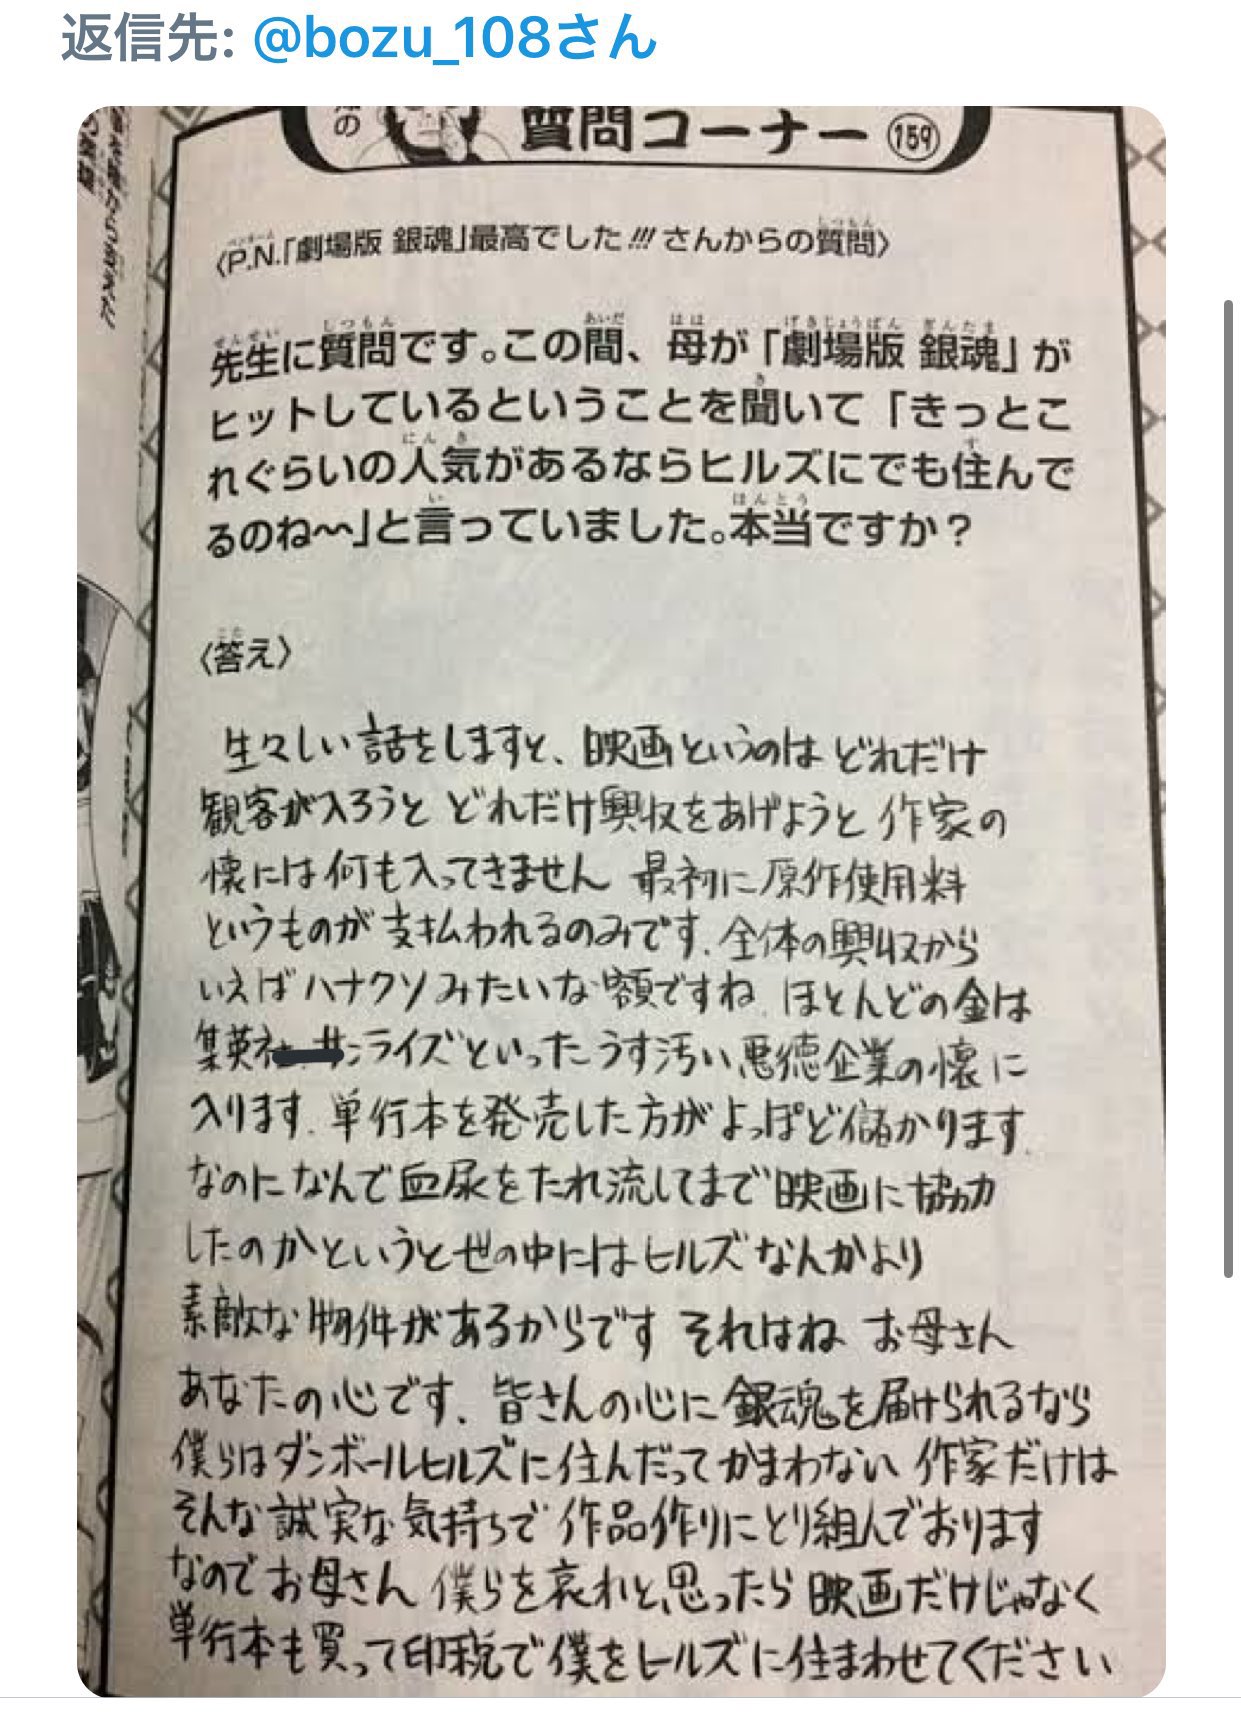 返信先: @bozu_108さん
の
質問コーナー 159
〈P.N.「劇場版 銀魂」最高でした!!! さんからの質問〉
先生に質問です。この間、母が「劇場版 銀魂」が
ヒットしているということを聞いて「きっとこ
れぐらいの人気があるならヒルズにでも住んで
るのね〜〜」と言っていました。本当ですか？
〈答え〉
生々しい話をしますと、映画というのは どれだけ
観客が入ろうと どれだけ興収をあげようと 作家の
懐には何も入ってきません 最初に原作使用料
というものが支払われるのみです. 全体の興収から
いえばハナクソみたいな額ですね. ほとんどの金は
集英社 サンライズといったうす汚い悪徳企業の懐に
入ります. 単行本を発売した方がよっぽど儲かります.
なのになんで血尿をたれ流してまで映画に協力
したのかというと世の中にはヒルズなんかより
素敵な物件があるからです それはね お母さん
あなたの心です. 皆さんの心に銀魂を届けられるなら
僕らはダンボールヒルズに住んだってかまわない 作家だけは
そんな誠実な気持ちで作品作りにとり組んでおります
なのでお母さん 僕らを哀れと思ったら映画だけじゃなく
単行本も買って印税で僕をヒルズに住まわせてください